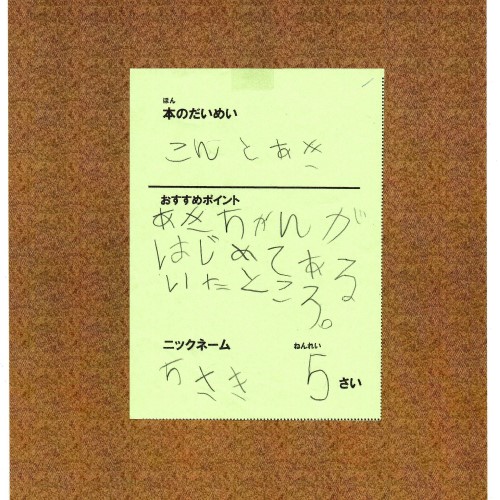 ほん
本のだいめい
こんとあき
おすすめポイント
あきちゃんが
はじめてある
いたところ。
ニックネーム
ねんれい
ちさき
5さい